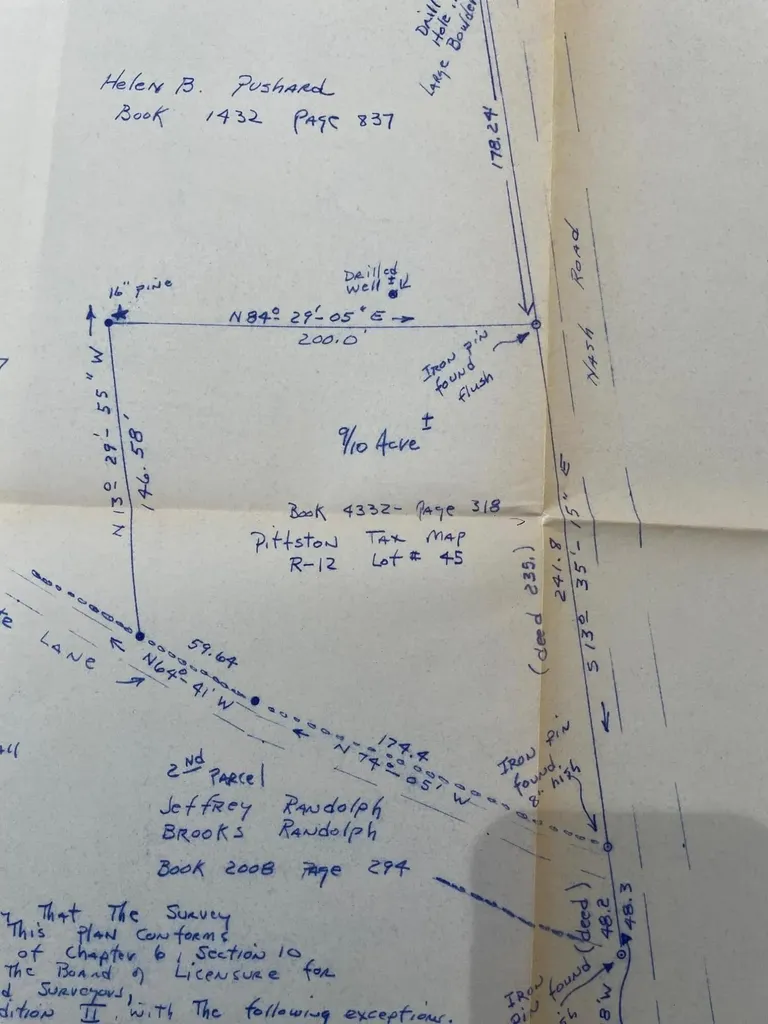 Drill
Hole
Large Boulder
Helen B. Pushard
Book 1432 Page 837
178.24'
Nash Road
16" pine
Drilled
Well ±
N 84° 29'-05" E
200.0'
Iron pin
found
flush
N 13° 29'-55" W
146.58'
9/10 Acre ±
Book 4332- Page 318
Pittston Tax Map
R-12 Lot # 45
(deed 235.)
241.8
S 13° 35'-15" E
Lane
59.64
N 64°-41' W
174.4
N 74°-05' W
Iron pin
found
2nd Parcel
Jeffrey Randolph
Brooks Randolph
Book 2008 Page 294
(deed)
48.2
48.3
y That The Survey
This Plan Conforms
of Chapter 6, Section 10
The Board of Licensure for
d Surveyors,
dition II with the following exceptions.
Iron
pin
found
8' W